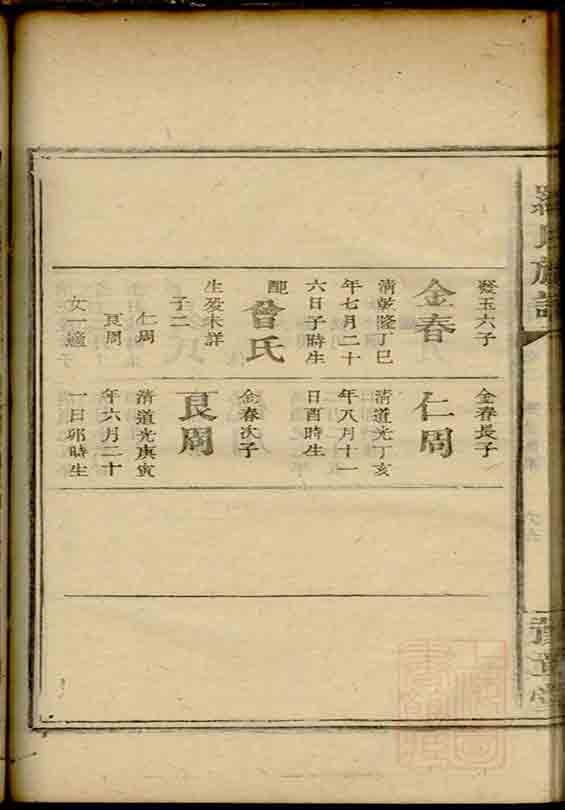 羅氏族譜
豫章堂
發玉六子
金春
清乾隆丁巳
年七月二十
六日子時生
配
曾氏
生歿未詳
子二
仁周
良周
女一適
金春長子
仁周
清道光丁亥
年八月十一
日酉時生
金春次子
良周
清道光庚寅
年六月二十
一日卯時生